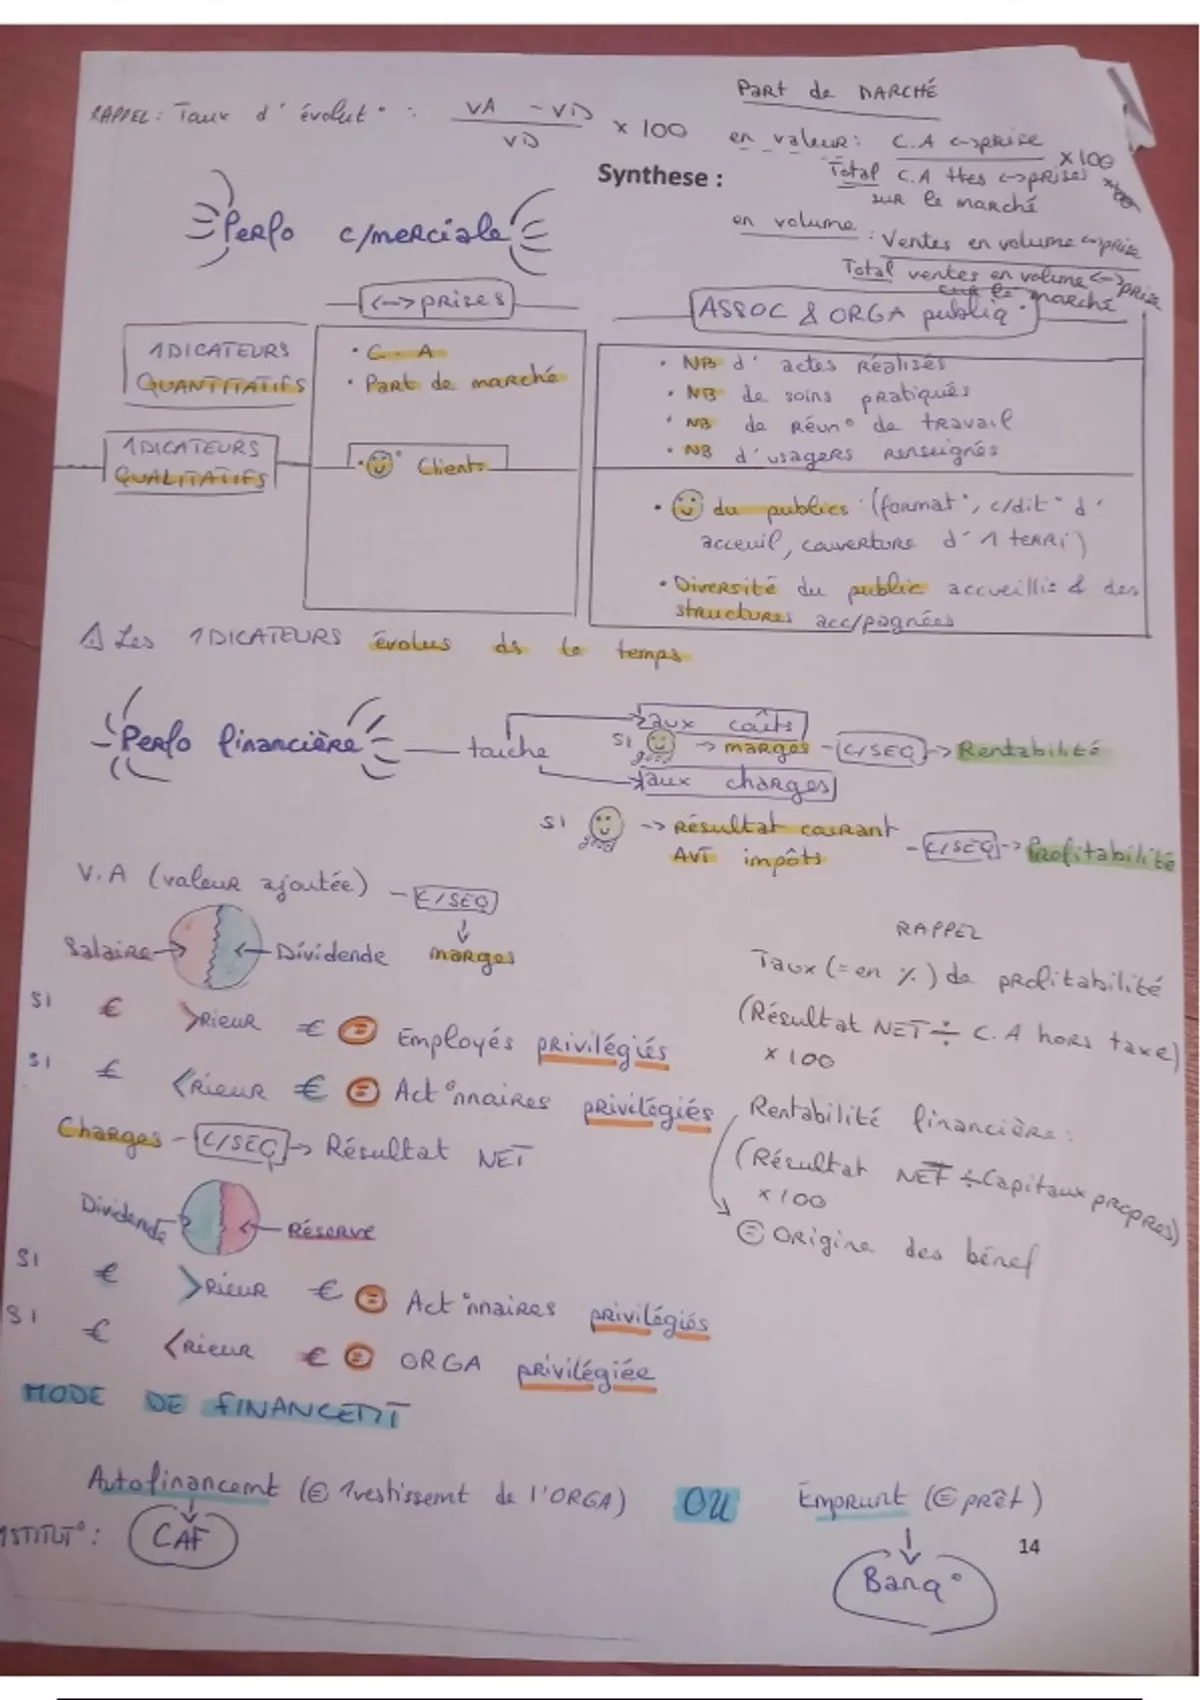 RAPPEL : Taux d'évolut° : VA - VD / VD x 100
Part de MARCHÉ
en valeur : C.A <->prise x 100
Total C.A ttes <->prises
sur le marché
Synthese :
en volume : Ventes en volume <->prise
Total ventes en volume <->prise
sur le marché
Perfo c/merciale
<->prises
ASSOC & ORGA publiq°
1DICATEURS
QUANTITATIFS
• C.A
• Part de marché
• NB d'actes Réalisés
• NB de soins pratiqués
• NB de Réun° de travail
• NB d'usagers renseignés
1DICATEURS
QUALITATIFS
• ° Clients
• du publics (format°, c/dit° d'
acceuil, couverture d'1 terri)
• Diversité du public accueillis & des
structures acc/pagnées
⚠ Les 1DICATEURS évolus ds le temps
Perfo financière — touche
→ aux coûts
SI good -> marges - C/SEQ -> Rentabilité
→ aux charges
SI good -> Résultat courant
AVT impôts - C/SEQ -> Profitabilité
V.A (valeur ajoutée) - C/SEQ
↓
marges
Salaire → ← Dividende
SI € >Rieur € = Employés privilégiés
SI € <Rieur € = Act°nnaires privilégiés
RAPPEL
Taux (= en %) de profitabilité
(Résultat NET ÷ C.A hors taxe)
x 100
Rentabilité financière :
(Résultat NET ÷ Capitaux propres)
x 100
= Origine des bénef
Charges - C/SEQ -> Résultat NET
Dividende → ← Réserve
SI € >Rieur € = Act°nnaires privilégiés
SI € <Rieur € = ORGA privilégiée
MODE DE FINANCEMT
Autofinancemt (= 1vestissemt de l'ORGA) OU Emprunt (= prêt)
1STITUT° : CAF
14
Banq°